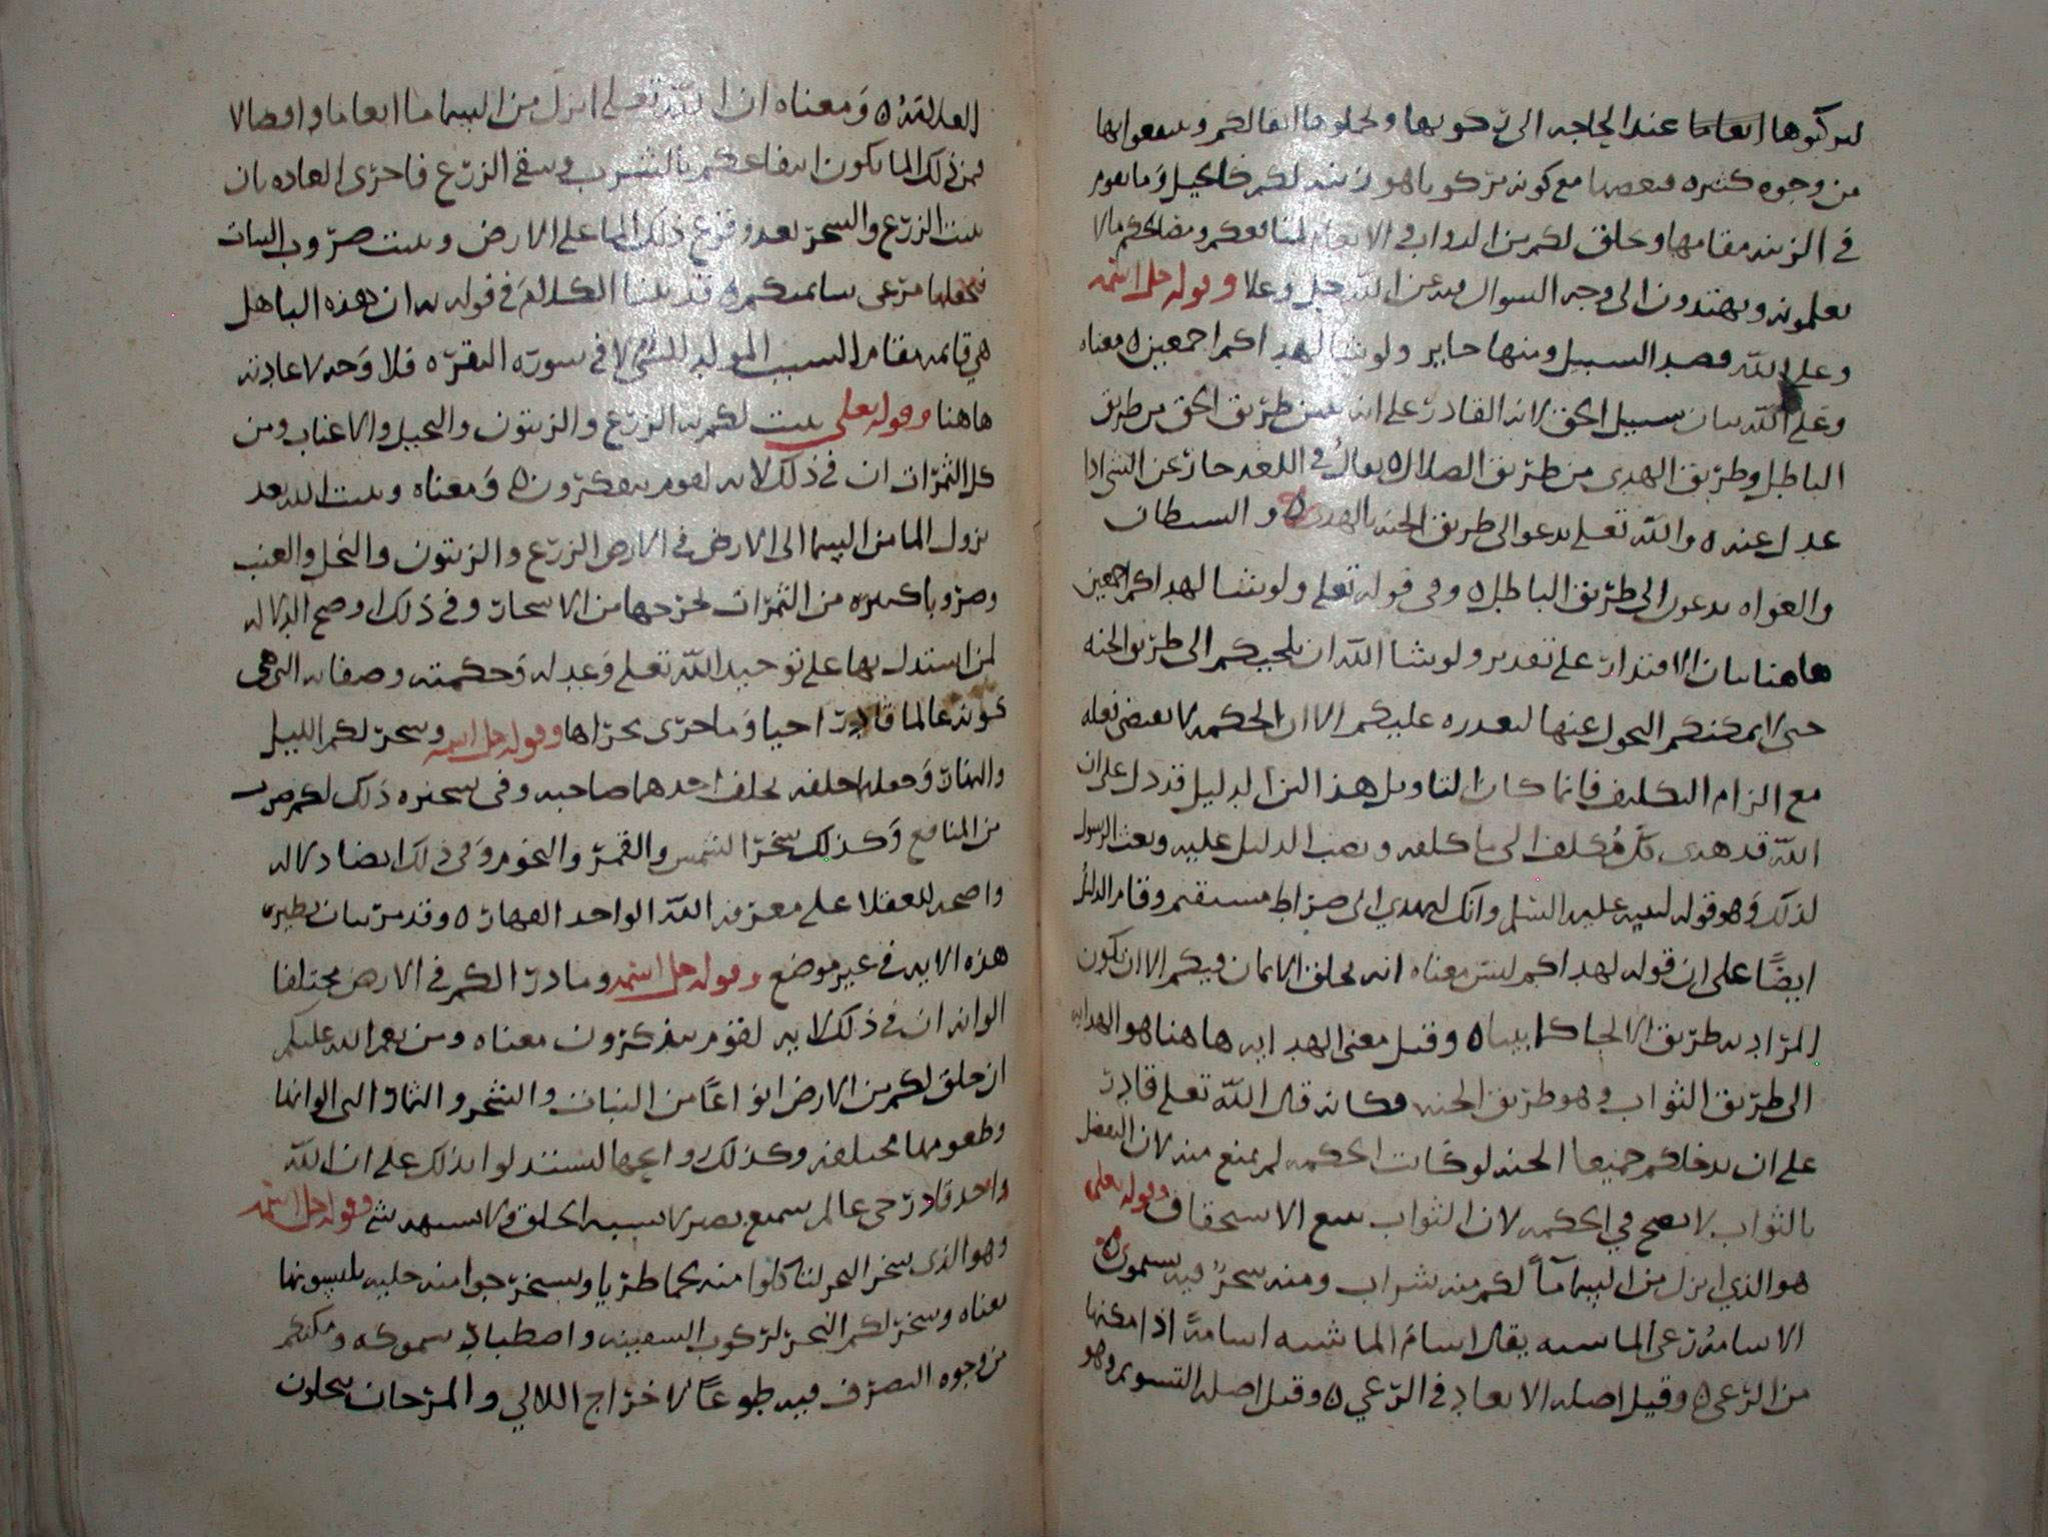 لتركبوها انعاما عند الحاجه الى ركوبها ولحملوها اثقالكم وينتفعوا بها
من وجوه كثيره فبعضها مع كونه مركوبا هو زينه لكم كالخيل وما يقوم
في الزينه مقامها وخلق لكم من الدواب في الانعام لمنافعكم ومصالحكم ما لا
تعلمونه وتهتدون الى وجه السوال فيه عن الله جل وعلا وقوله جل اسمه
وعلى الله قصد السبيل ومنها جاير ولو شا لهداكم اجمعين ه معناه
وعلى الله بيان سبيل الحق لانه القادر على ان يبين طريق الحق من طريق
الباطل وطريق الهدى من طريق الضلال ه يقال في اللغه جار عن الشي اذا
عدل عنه ه والله تعلى يدعو الى طريق الجنه بالهدى ه والشيطان
والغواه يدعون الى طريق الباطل ه وفي قوله تعلى ولو شا لهداكم اجمعين
هاهنا بيان الاقتدار على تقدير ولو شا الله ان يلجيكم الى طريق الجنه
حتى لا يمكنكم التحول عنها لقدره عليكم الا ان الحكمه لا تقتضي فعله
مع الزام التكليف فانما كان التاويل هذا لان الدليل قد دل على ان
الله قد هدى كل مكلف الى ما كلفه ونصب الدليل عليه وبعث الرسول
لذلك وهو قوله لنبيه عليه السلم وانك لتهدي الى صراط مستقيم وقام الدليل
ايضًا على ان قوله لهداكم ليس معناه انه يخلق الايمان فيكم الا ان يكون
المراد به طريق الالجا كما بيناه وقيل معنى الهدايه هاهنا هو الهدايه
الى طريق الثواب وهو طريق الجنه فكانه قال الله تعلى قادر
على ان يدخلكم جميعا الجنه لو كانت الحكمه لم تمنع منه لان التفضل
بالثواب لا يصح في الحكمه لان الثواب يتبع الاستحقاق وقوله تعلى
هو الذي انزل من السما مآً لكم منه شراب ومنه شجرٌ فيه تسيمون ه
الاسامه رعي الماشيه يقال اسام الماشيه اسامةً اذا امكنها
من الرعي ه وقيل اصله الابعاد في الرعي ه وقيل اصله التسويم وهو
العلامه ه ومعناه ان الله تعلى انزل من السما ما انعاما وافضالا
فمن ذلك الما يكون انتفاعكم بالشرب وسقي الزرع فاجرى العاده بان
ينبت الزرع والشجر بعد وقوع ذلك الما على الارض وينبت ضروب النبات
فيجعلها مرعى سايمتكم ه قد بينا الكلام في قوله به ان هذه البا هل
هي قايمه مقام السبب المولد للشي ام لا في سورة البقره فلا وجه لاعادته
هاهنا وقوله تعلى ينبت لكم به الزرع والزيتون والنخيل والاعناب ومن
كل الثمرات ان في ذلك لايه لقوم يتفكرون ه ومعناه وينبت الله بعد
نزول الما من السما الى الارض في الارض الزرع والزيتون والنخل والعنب
وضروبا كثيره من الثمرات يخرجها من الاشجار وفي ذلك اوضح الدلاله
لمن استدل بها على توحيد الله تعلى وعدله وحكمته وصفاته التي هي
كونه عالما قادرا حيا وما جرى مجراها وقوله جل اسمه وسخر لكم الليل
والنهار وجعلها خلفه يخلف احدهما صاحبه وفي تسخيره ذلك لكم ضرب
من المنافع وكذلك سخر الشمس والقمر والنجوم وفي ذلك ايضا دلاله
واضحه للعقلا على معرفه الله الواحد القهار ه وقد مر بيان نظير
هذه الايه في غير موضع وقوله جل اسمه وما درا لكم في الارض مختلفا
الوانه ان في ذلك لايه لقوم يذكرون معناه ومن نعم الله عليكم
ان خلق لكم من الارض انواعًا من النبات والشجر والثمار التي الوانها
وطعومها مختلفه وكذلك روايحها لتستدلوا بذلك على ان الله
واحد قادر حي عالم سميع بصير لا يشبه الخلق ولا يشبهه شي وقوله جل اسمه
وهو الذي سخر البحر لتاكلوا منه لحما طريا وتستخرجوا منه حليه تلبسونها
معناه وسخر لكم البحر لركوب السفينه واصطياد سموكه ومكنكم
من وجوه التصرف فيه طوعًا لاخراج اللالي والمرجان تتحلون